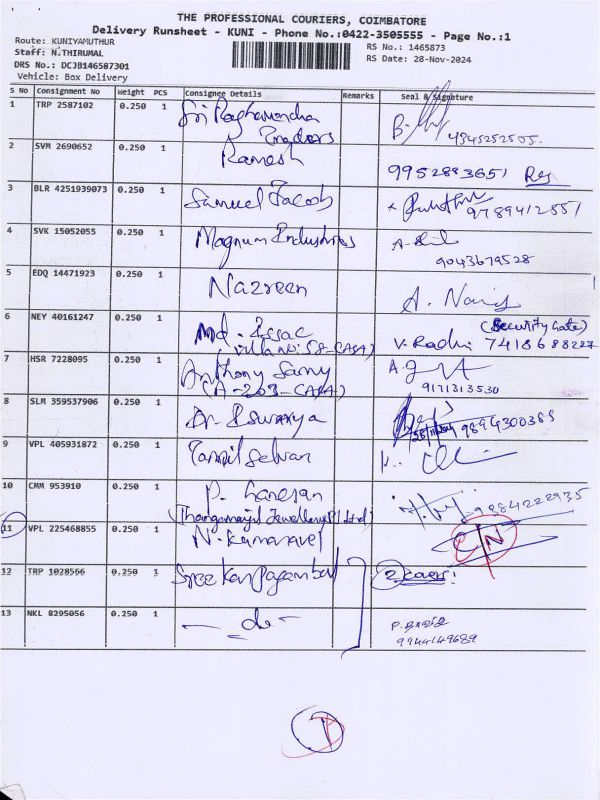 THE PROFESSIONAL COURIERS, COIMBATORE
Delivery Runsheet - KUNI - Phone No.:0422-3505555 - Page No.:1
Route: KUNIYAMUTHUR
Staff: N.THIRUMAL
DRS No.: DCJB146587301
Vehicle: Box Delivery
RS No.: 1465873
RS Date: 28-Nov-2024
S No Consignment No Weight PCS Consignee Details Remarks Seal & Signature
1 TRP 2587102 0.250 1 Sri Raghavendra
Traders
2 SVM 2690652 0.250 1 Ramesh 9952883651
3 BLR 4251939073 0.250 1 Samuel Jacob 9789412551
4 SVK 15052055 0.250 1 Magnum Industries 9043679528
5 EDQ 14471923 0.250 1 Nazreen A.
6 NEY 40161247 0.250 1 Md. Issac (Security Gate)
V. Radhi 7418688227
7 HSR 7228095 0.250 1 Anthony Samy
(A-203-CASA) 9171313530
8 SLM 359537906 0.250 1 Dr. Eswarya 9894300385
9 VPL 405931872 0.250 1 Tamil Selvan
10 CMM 953910 0.250 1 P. Ganesan
(Thangamayil Jewellery P) Ltd) 9884222935
11 VPL 225468855 0.250 1 N. Kamaravel C/N
12 TRP 1028566 0.250 1 2 Cover!
13 NKL 8295056 0.250 1 - do - 9944149689